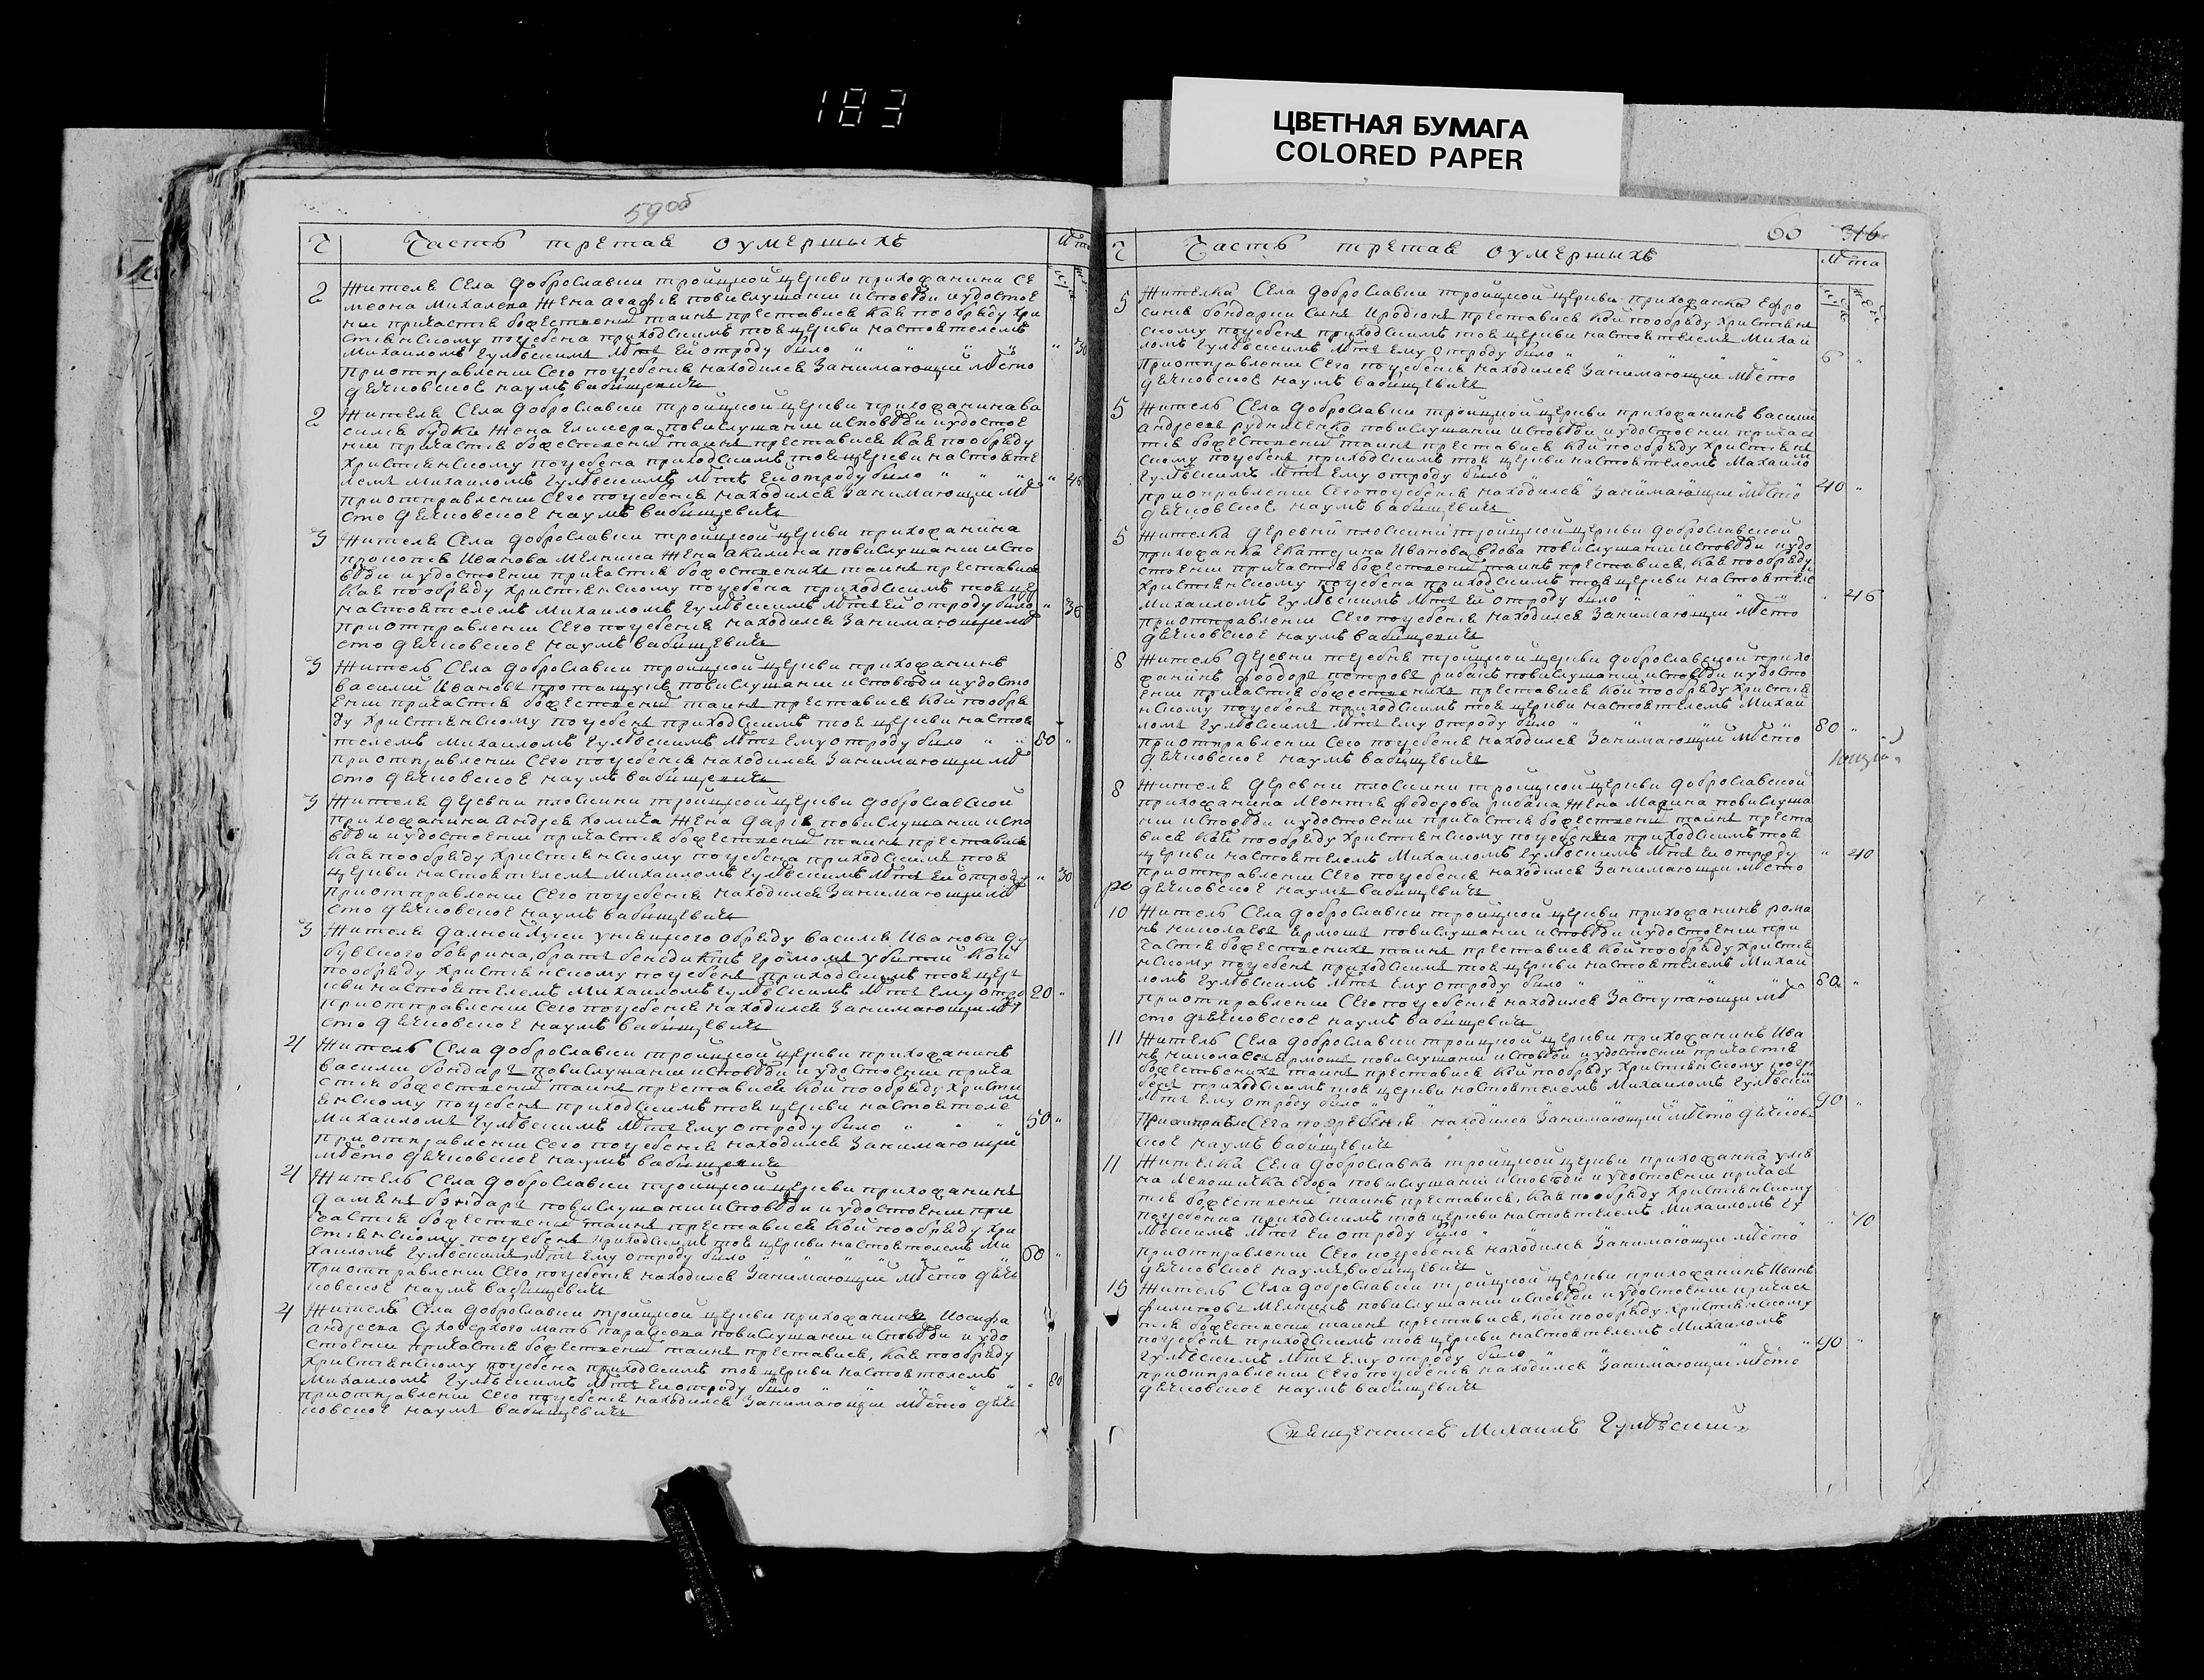 183
ЦВЕТНАЯ БУМАГА
COLORED PAPER
59об
Ч Часть третая оумершыхъ Лѣта
2 Жителя Села доброславки тройцкой церкви прихожанина Се
меона Михалева Жена агафія повислушании исповѣди иудостое
нии причастія божественӹ таинъ преставися Кая пообряду хри
стіянскому погребена приходскимъ тоя церкви настоятелемъ
Михаиломъ Гулѣвскимъ лѣтъ Ей отроду било " " " " 30
приотправлении Сего погребенія находился Занимающии мѣсто
дячковское наумъ вабищевичъ
2 Жителя Села доброславки тройцкой церкви прихожанина ва
силя будки Жена Елисера повислушании исповѣди иудостое
нии причастія божественӹ таинъ преставися Кая пообряду
християнскому погребена приходскимъ тоя церкви настояте
лемъ Михаиломъ Гулѣвскимъ лѣтъ Ей отроду било " " " 46
приотправлении Сего погребенія находился Занимающии мѣ
сто дячковское наумъ вабищевичъ
3 Жителя Села доброславки тройцкой церкви прихожанина
прокопія Иванова Мелника Жена акилина повислушании испо
вѣди иудостоении причастія божественихъ таинъ преставися
Кая пообряду християнскому погребена приходскимъ тоя цер
настоятелемъ Михаиломъ Гулѣвскимъ лѣтъ Ей отроду било " 36
приотправлении Сего погребенія находился Занимающии мѣ
сто дячковское наумъ вабищевичъ
3 Житель Села доброславки тройцкой церкви прихожанинъ
василий Ивановъ протащукъ повислушании исповѣди иудосто
ении причастія божественӹ таинъ преставися Кой пообря
ду християнскому погребенъ приходскимъ тоя церкви настоя
телемъ Михаиломъ Гулѣвскимъ лѣтъ Ему отроду било " " 80 "
приотправлении Сего погребенія находился Занимающии мѣ
сто дячковское наумъ вабищевичъ
3 Жителя деревни плоскини тройцкой церкви доброславской
прихожанина Андрея хомича Жена дарія повислушании испо
вѣди иудостоении причастія божественӹ таинъ преставися
Кая пообряду християнскому погребена приходскимъ тоя
церкви настоятелемъ Михаиломъ Гулѣвскимъ лѣтъ Ей отроду " 30
приотправлении Сего погребенія находился Занимающии мѣ
сто дячковское наумъ вабищевичъ
3 Жителя унѣяцкого обряду василія Иванова ду
бувского боярина, братъ бенедиктъ громомъ убитий Кой
пообряду християнскому погребенъ приходскимъ тоя цер
кви настоятелемъ Михаиломъ Гулѣвскимъ лѣтъ Ему отро 20 "
приотправлении Сего погребенія находился Занимающии мѣ
сто дячковское наумъ вабищевичъ
4 Житель Села доброславки тройцкой церкви прихожанинъ
василий бондаръ повислушании исповѣди иудостоении прича
стія божественӹ таинъ преставися Кой пообряду христи
янскому погребенъ приходскимъ тоя церкви настоятеле
Михаиломъ Гулѣвскимъ лѣтъ Ему отроду било " " " 50 "
приотправлении Сего погребенія находился Занимающий
мѣсто дячковское наумъ вабищевичъ
4 Житель Села доброславки тройцкой церкви прихожанинъ
даміянъ бондаръ повислушании исповѣди иудостоении при
частія божественӹ таинъ преставися Кой пообряду хри
стіянскому погребенъ приходскимъ тоя церкви настоятелемъ Ми
хаиломъ Гулѣвскимъ лѣтъ Ему отроду било " " " " 60 "
приотправлении Сего погребенія находился Занимающий мѣсто дяч
ковское наумъ вабищевичъ
4 Жителя Села доброславки тройцкой церкви прихожанина Иосифа
андреева Суховерхого мать парасева повислушании исповѣди иудо
стоении причастія божественӹ таинъ преставися, Кая пообряду
християнскому погребена приходскимъ тоя церкви настоятелемъ
Михаиломъ Гулѣвскимъ лѣтъ Ей отроду било " " " " " 80
приотправлении Сего погребенія находился Занимающии мѣсто дяч
ковское наумъ вабищевичъ
60 316
Часть третая оумершыхъ Лѣта
5 Жителка Села доброславки тройцкой церкви прихожанка Ефро
синія бондарки Сынъ Иродіонъ преставися Кой пообряду християн
скому погребенъ приходскимъ тоя церкви настоятелемъ Михаи
ломъ Гулѣвскимъ лѣтъ Ему отроду било " " " " 6 "
приотправлении Сего погребенія находился Занимающии мѣсто
дячковское наумъ вабищевичъ
5 Житель Села доброславки тройцкой церкви прихожанинъ василий
андреевъ рудниченко повислушании исповѣди иудостоении причас
тія божественӹ таинъ преставися Кой пообряду християн
скому погребенъ приходскимъ тоя церкви настоятелемъ Михаило
Гулѣвскимъ лѣтъ Ему отроду било " " " " 40 "
приоправлении Сего погребенія находился Занимающии мѣсто
дячковское наумъ вабищевичъ
5 Жителка деревнй плоскини тройцкой церкви доброславской
прихожанка Екатерина Иванова вдова повислушании исповѣди иудо
стоении причастія божественӹ таинъ преставися, Кая пообряду
християнскому погребена приходскимъ тоя церкви настоятеле
Михаиломъ Гулѣвскимъ лѣтъ Ей отроду било " " " " 46
приотправлении Сего погребенія находился Занимающии мѣсто
дячковское наумъ вабищевичъ
8 Житель деревни теребня тройцкой церкви доброславской прихо
жанинъ феодоръ петровъ рибакъ повислушании исповѣди иудосто
ении причастія божественихъ преставися Кой пообряду христия
нскому погребенъ приходскимъ тоя церкви настоятелемъ Михаи
ломъ Гулѣвскимъ лѣтъ Ему отроду било " " " " 80 "
приотправлении Сего погребенія находился Занимающии мѣсто
дячковское наумъ вабищевичъ
8 Жителя деревни плоскини тройцкой церкви доброславской
прихожанина леонтія федорова рибака Жена Марина повислуша
нии исповѣди иудостоении причастія божественӹ таинъ преста
вися Кая пообряду християнскому погребенна приходскимъ тоя
церкви настоятелемъ Михаиломъ Гулѣвскимъ лѣтъ Ей отроду " 40
приотправлении Сего погребенія находился Занимающии мѣсто
дячковское наумъ вабищевичъ
10 Житель Села доброславки тройцкой церкви прихожанинъ рома
нъ николаевъ ярмошъ повислушании исповѣди иудостоении при
частія божественихъ таинъ преставися Кой пообряду христия
нскому погребенъ приходскимъ тоя церкви настоятелемъ Михаи
ломъ Гулѣвскимъ лѣтъ Ему отроду било " " " " "
приотправлении Сего погребенія находился Заступающии мѣ
сто дячковское наумъ вабищевичъ
11 Житель Села доброславки тройцкой церкви прихожанинъ Ива
нъ николаевъ ярмошъ повислушании исповѣди иудостоении причастія
божественихъ таинъ преставися Кой пообряду християнскому погре
бенъ приходскимъ тоя церкви настоятелемъ Михаиломъ Гулѣвски
лѣтъ Ему отроду било " " " " 90 "
Приотправле Сего погребеній находился Занимающии мѣсто дячков
ское наумъ вабищевичъ
11 Жителка Села доброславки тройцкой церкви прихожанка улія
на вдова повислушании исповѣди иудостоении причас
тія божественӹ таинъ преставися, Кая пообряду християнскому
погребенна приходскимъ тоя церкви настоятелемъ Михаиломъ Гу
лѣвскимъ лѣтъ Ей отроду било " " " " 70
приотправлении Сего погребенія находился Занимающии мѣсто
дячковское наумъ вабищевичъ
15 Житель Села доброславки тройцкой церкви прихожанинъ Иванъ
филиповъ Мелникъ повислушании исповѣди иудостоении причас
тія божественӹ таинъ преставися, Кой пообряду християнскому
погребенъ приходскимъ тоя церкви настоятелемъ Михаиломъ
Гулѣвскимъ лѣтъ Ему отроду било " " " " 40 "
приотправлении Сего погребенія находился Занимающии мѣсто
дячковское наумъ вабищевичъ
Священникъ Михаилъ Гулѣвский